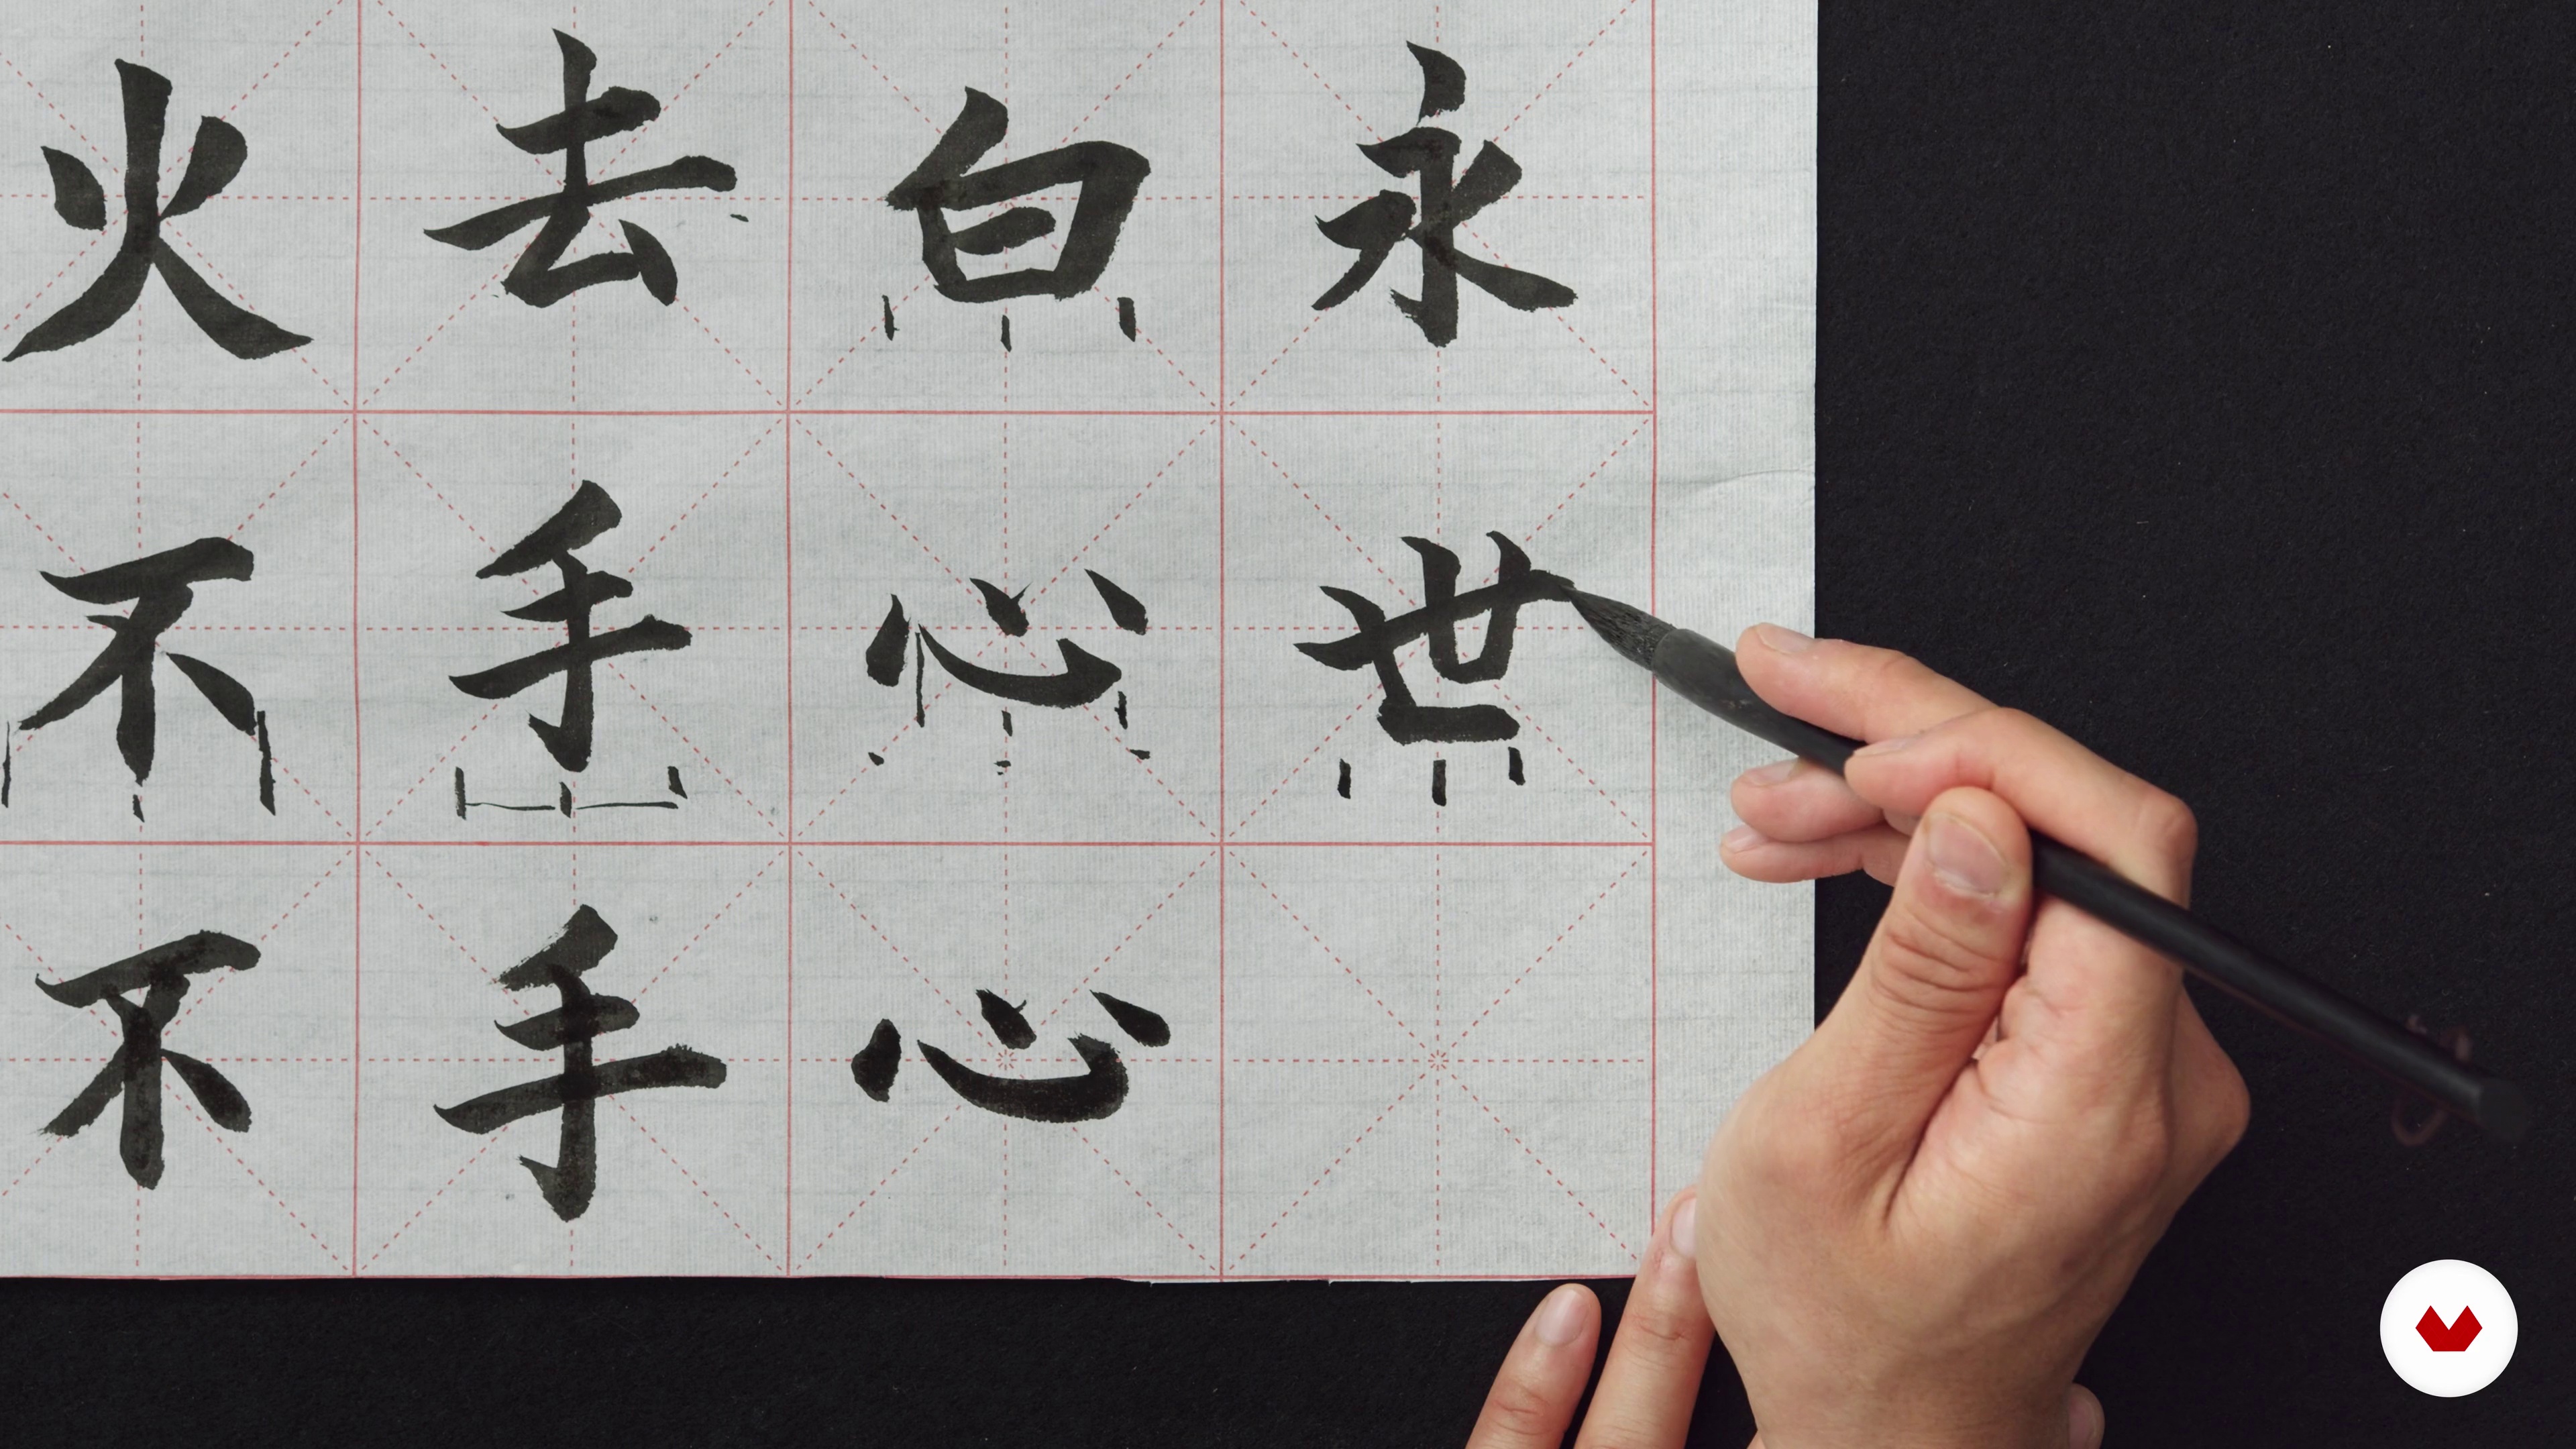 火去白永
不手心世
不手心